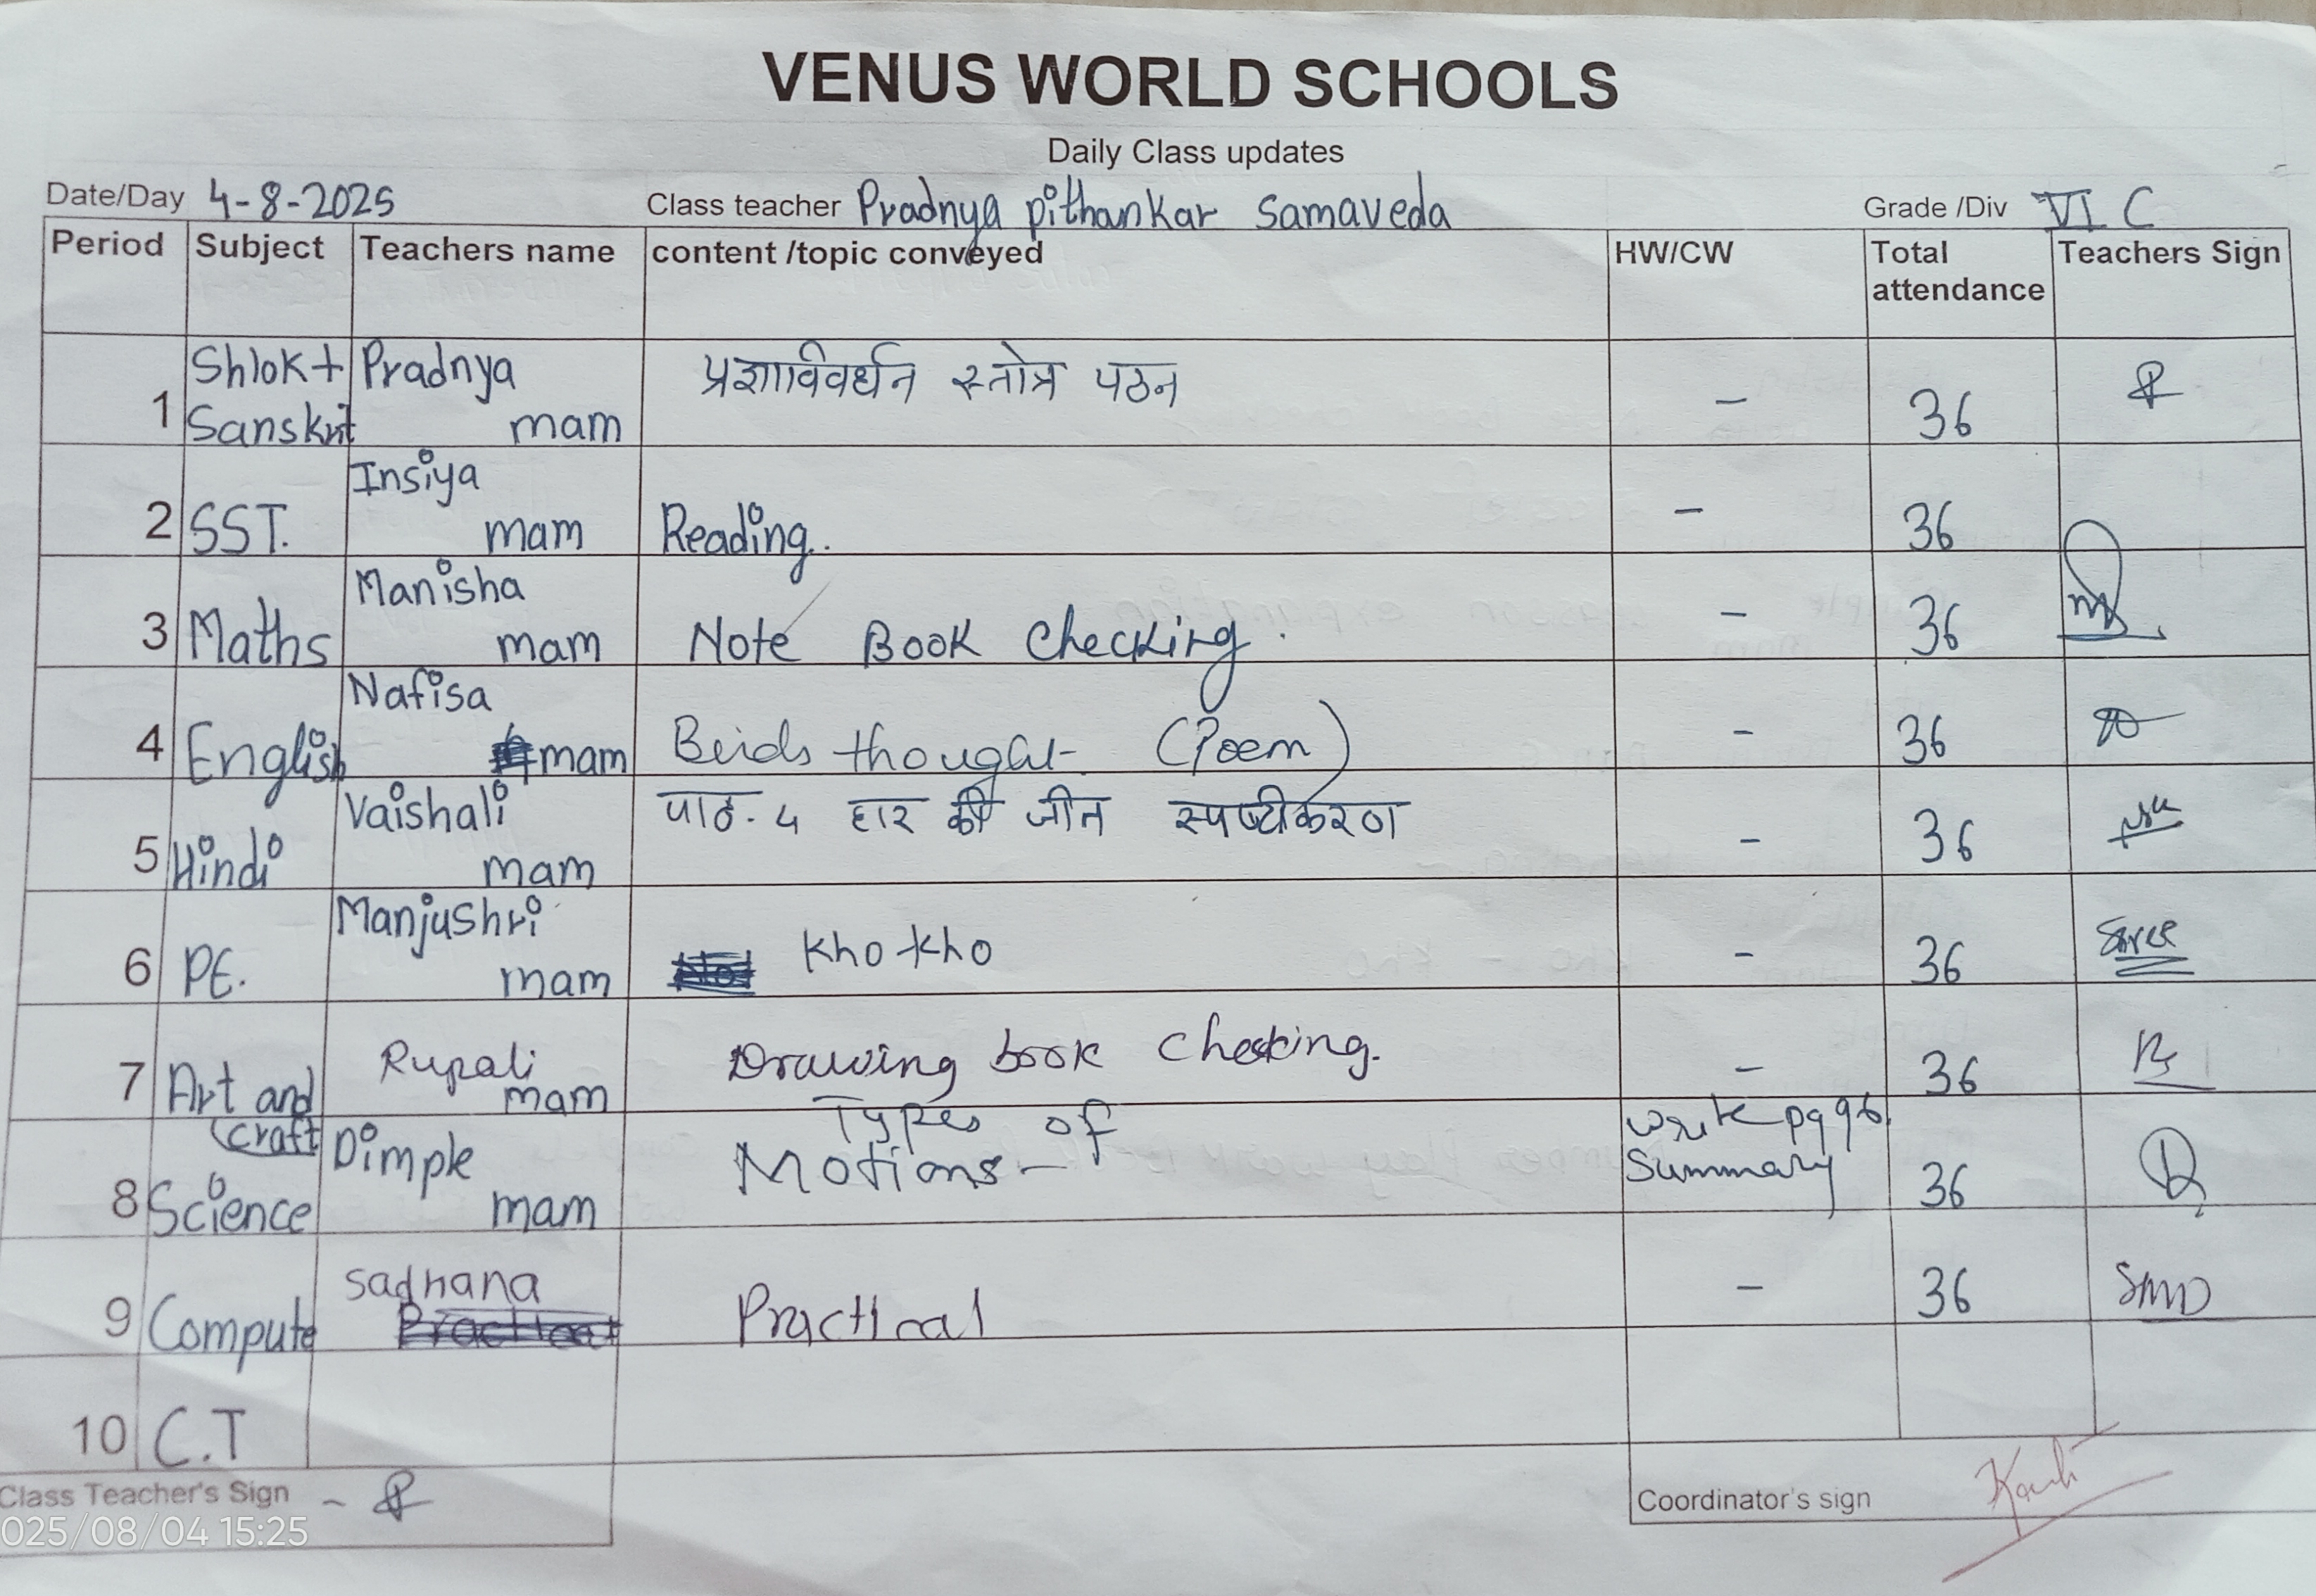 VENUS WORLD SCHOOLS
Daily Class updates
Date/Day 4-8-2025 Class teacher Pradnya pithankar Samaveda Grade /Div VI C
Period Subject Teachers name content /topic conveyed HW/CW Total attendance Teachers Sign
1 Shlok + Sanskrit Pradnya mam प्रज्ञाविवर्धन स्तोत्र पठन - 36
2 SST. Insiya mam Reading. - 36
3 Maths Manisha mam Note Book Checking. - 36
4 English Nafisa mam Birds thought (Poem) - 36
5 Hindi Vaishali mam पाठ. 4 हार की जीत स्पष्टीकरण - 36
6 PE. Manjushri mam Kho kho - 36
7 Art and craft Rupali mam Drawing book checking. - 36
8 Science Dimple mam Types of Motions - write pg 96 Summary 36
9 Compute Sadhana Practical - 36
10 C.T
Class Teacher's Sign -
Coordinator's sign
025/08/04 15:25